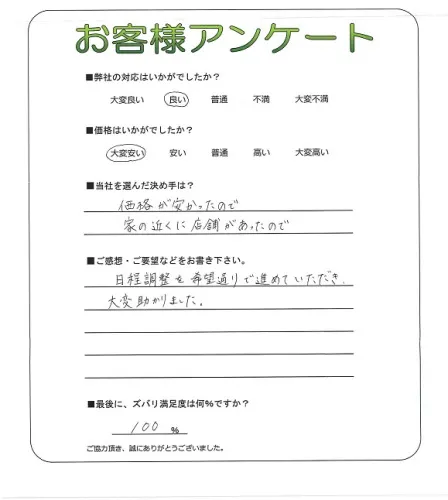 お客様アンケート
■弊社の対応はいかがでしたか？
大変良い 良い 普通 不満 大変不満
■価格はいかがでしたか？
大変安い 安い 普通 高い 大変高い
■当社を選んだ決め手は？
価格が安かったので
家の近くに店舗があったので
■ご感想・ご要望などをお書き下さい。
日程調整を希望通りで進めていただき、
大変助かりました。
■最後に、ズバリ満足度は何%ですか？
100 %
ご協力頂き、誠にありがとうございました。